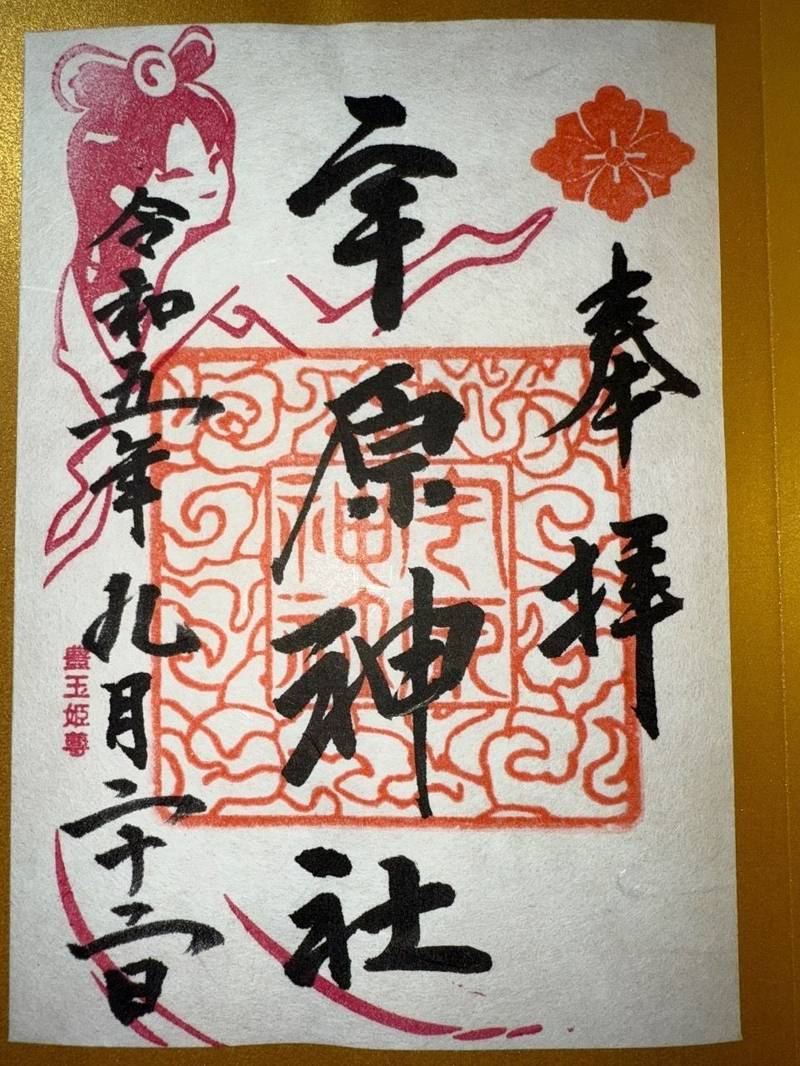 奉拝
宇原神社
宇原
神社
令和五年九月二十二日
豐玉姫尊